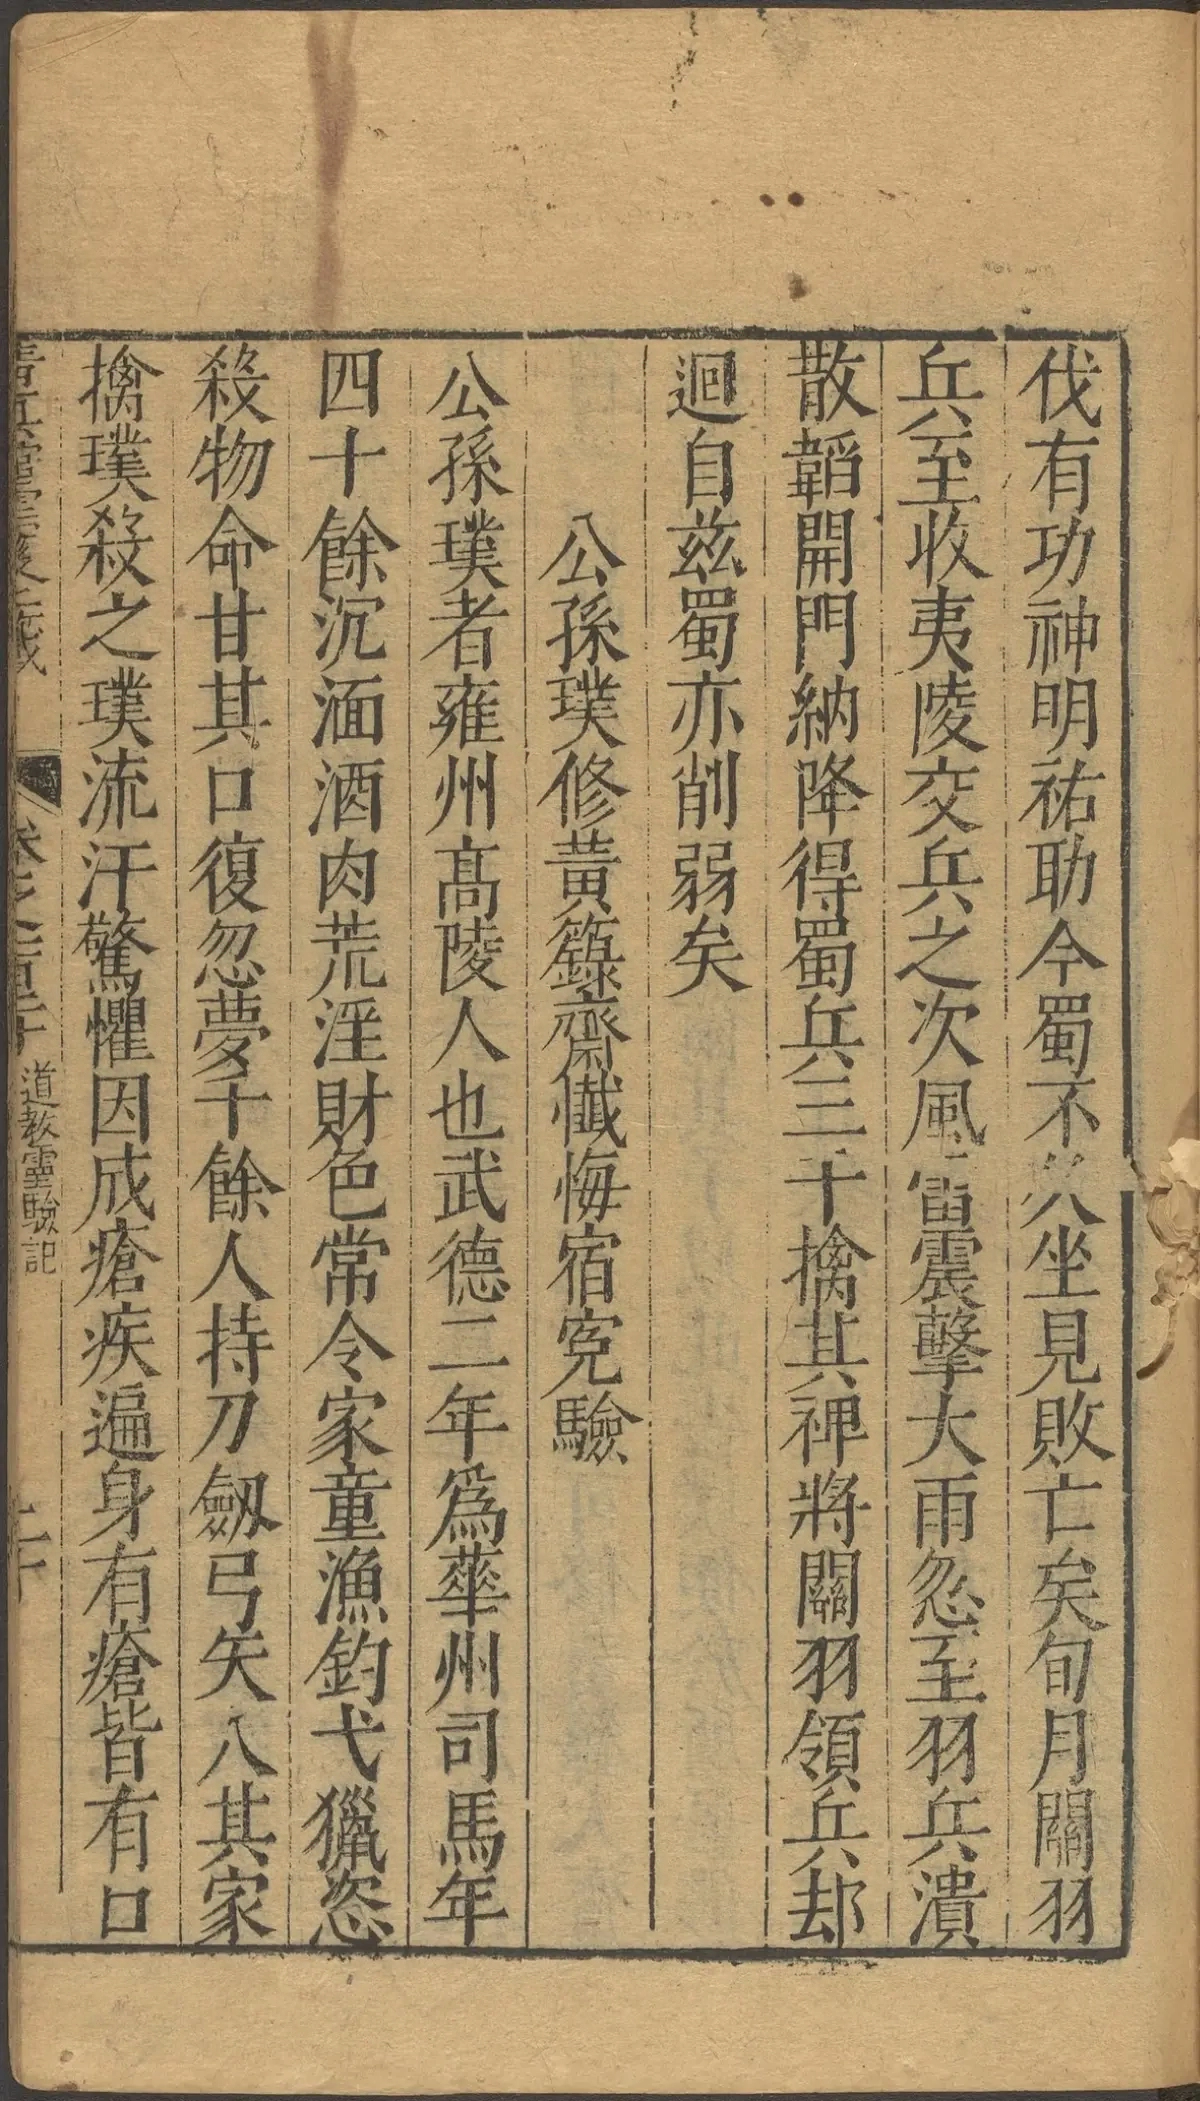 伐有功神明祐助今蜀不久坐見敗亡矣旬月關羽
兵至收夷陵交兵之次風雷震擊大雨忽至羽兵潰
散韜開門納降得蜀兵三千擒其裨將關羽領兵却
迴自兹蜀亦削弱矣
公孫璞修黃籙齋懺悔宿寃驗
公孫璞者雍州高陵人也武德二年爲華州司馬年
四十餘沉湎酒肉荒淫財色常令家童漁釣弋獵恣
殺物命甘其口復忽夢千餘人持刀劔弓矢入其家
擒璞殺之璞流汗驚懼因成瘡疾遍身有瘡皆有口
道教靈驗記